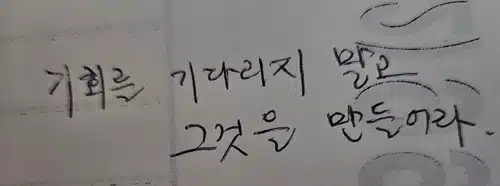 기회를 기다리지 말고
그것을 만들어라.